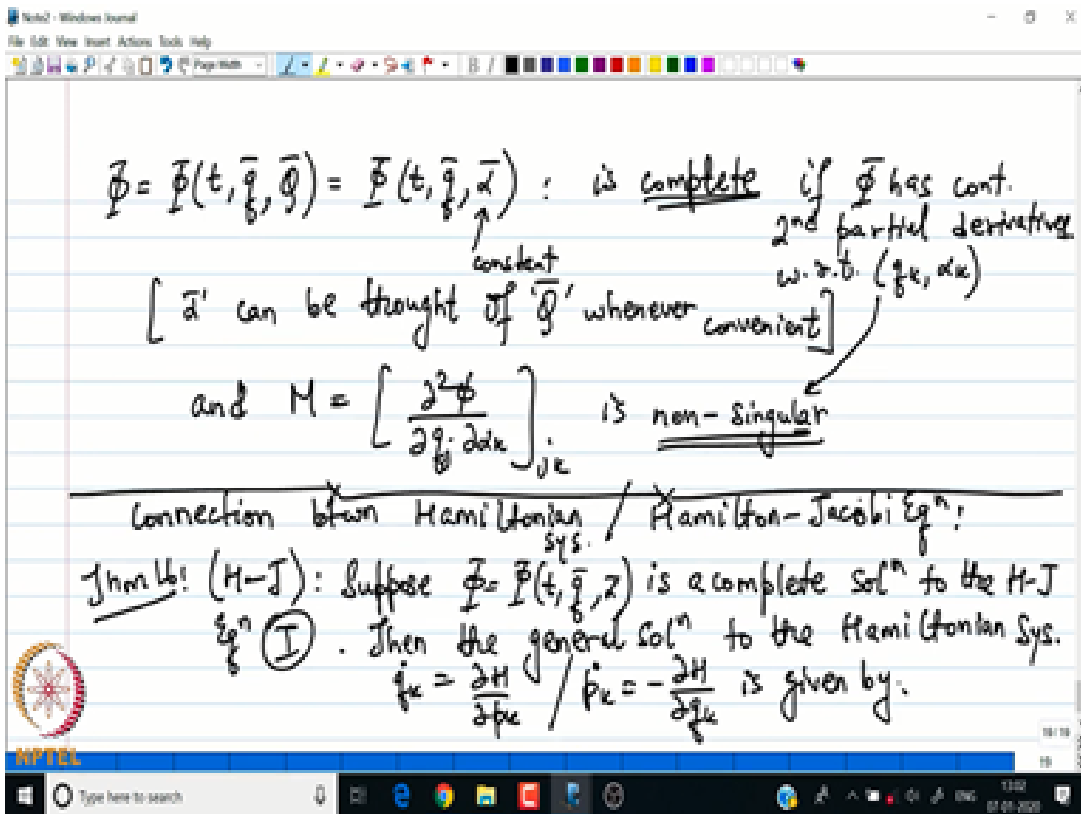 Note2 - Windows Journal
File Edit View Insert Actions Tools Help
Page Width
Φ = Φ(t, q̄, Q̄) = Φ(t, q̄, ᾱ) : is complete if Φ has cont.
2nd partial derivatives
w.r.t. (qk, αk)
constant
[ 'ᾱ' can be thought of 'Q̄' whenever convenient ]
and M = [ ∂²Φ / ∂qj ∂αk ]jk is non-singular
Connection btwn Hamiltonian Sys. / Hamilton-Jacobi Eqⁿ:
Thm 16: (H-J): Suppose Φ = Φ(t, q̄, ᾱ) is a complete solⁿ to the H-J
Eqⁿ (I). Then the general solⁿ to the Hamiltonian Sys.
q̇k = ∂H/∂pk / ṗk = -∂H/∂qk is given by.
NPTEL
19/19
19
Type here to search
ENG
13:02
07-01-2020